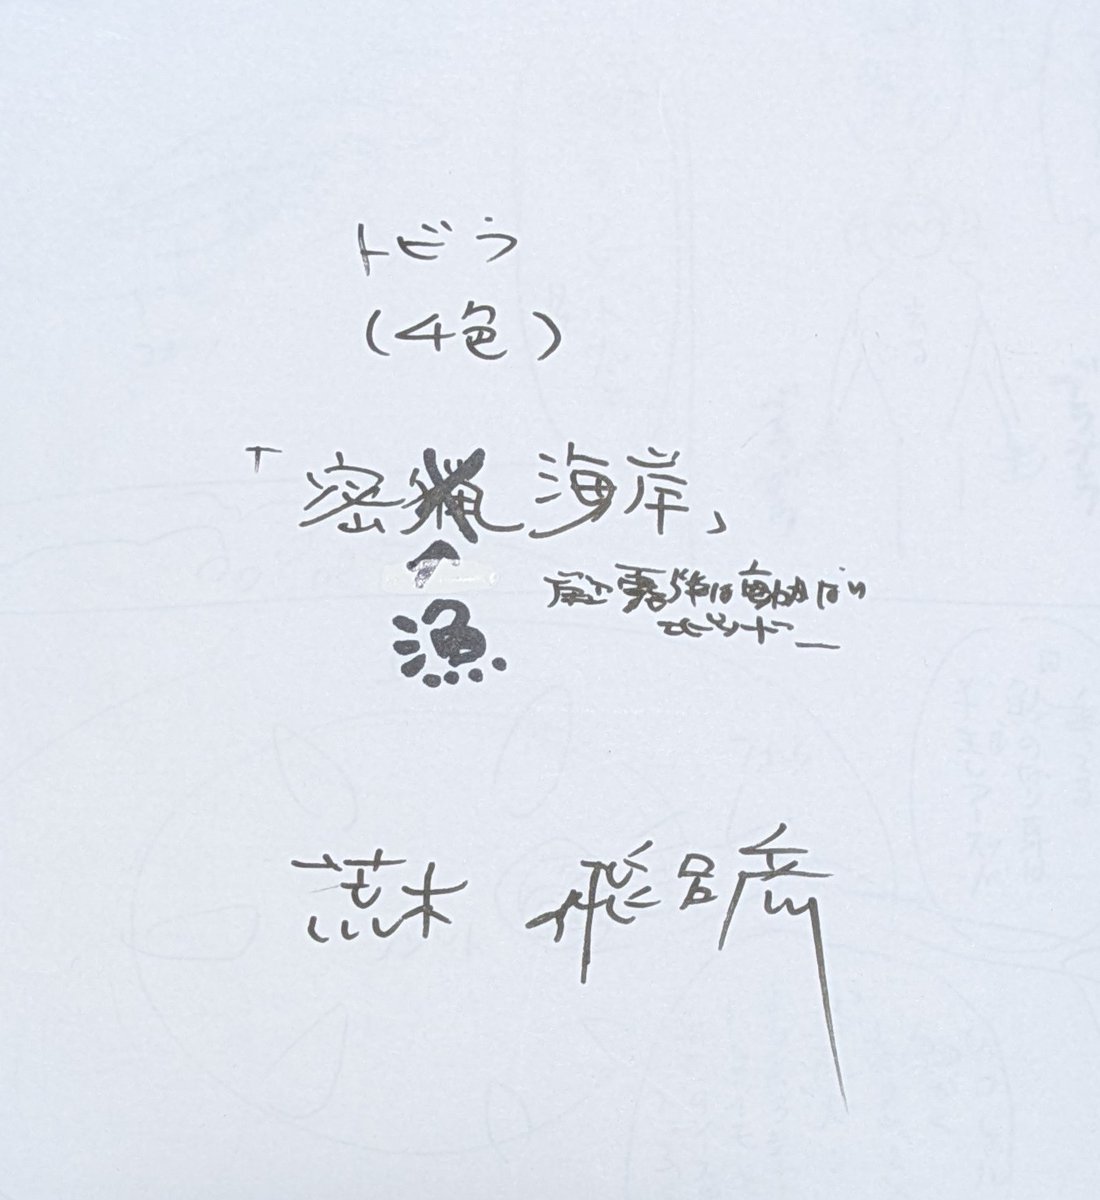 トビラ
(4色)
「密猟海岸」
↑
漁
岸辺露伴は動かない
エピソード_
荒木 飛呂彦